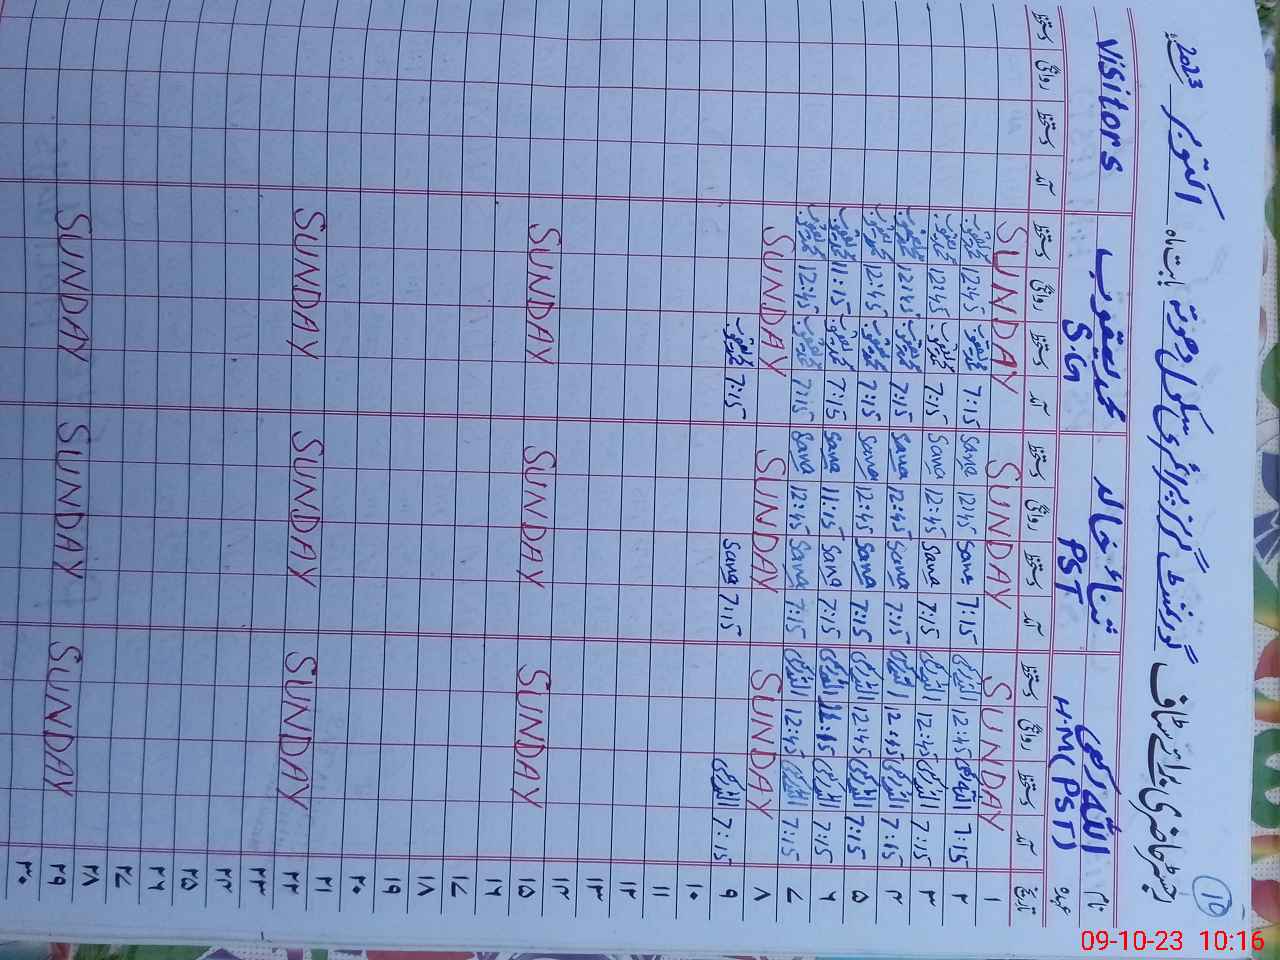 رجسٹر حاضری برائے سٹاف گورنمنٹ گرلز پرائمری سکول بابت ماہ اکتوبر 2023
10
نام اللہ رکھی ثناء خالد محمد یعقوب Visitors
عہدہ H.M(PST) PST S.G
تاریخ آمد دستخط روانگی دستخط آمد دستخط روانگی دستخط آمد دستخط روانگی دستخط آمد دستخط روانگی دستخط
۱ SUNDAY SUNDAY SUNDAY
۲ 7:15 12:45 7:15 Sana 12:45 Sana 7:15 محمد یعقوب 12:45 محمد یعقوب
۳ 7:15 اللہ رکھی 12:45 اللہ رکھی 7:15 Sana 12:45 Sana 7:15 محمد یعقوب 12:45 محمد یعقوب
۴ 7:15 اللہ رکھی 12:45 اللہ رکھی 7:15 Sana 12:45 Sana 7:15 محمد یعقوب 12:45 محمد یعقوب
۵ 7:15 اللہ رکھی 12:45 اللہ رکھی 7:15 Sana 12:45 Sana 7:15 محمد یعقوب 12:45 محمد یعقوب
۶ 7:15 اللہ رکھی 11:15 اللہ رکھی 7:15 Sana 11:15 Sana 7:15 محمد یعقوب 11:15 محمد یعقوب
۷ 7:15 اللہ رکھی 12:45 اللہ رکھی 7:15 Sana 12:45 Sana 7:15 محمد یعقوب 12:45 محمد یعقوب
۸ SUNDAY SUNDAY SUNDAY
۹ 7:15 اللہ رکھی 7:15 Sana 7:15 محمد یعقوب
۱۰
۱۱
۱۲
۱۳
۱۴
۱۵ SUNDAY SUNDAY SUNDAY
۱۶
۱۷
۱۸
۱۹
۲۰
۲۱
۲۲ SUNDAY SUNDAY SUNDAY
۲۳
۲۴
۲۵
۲۶
۲۷
۲۸
۲۹ SUNDAY SUNDAY SUNDAY
۳۰
09-10-23 10:16